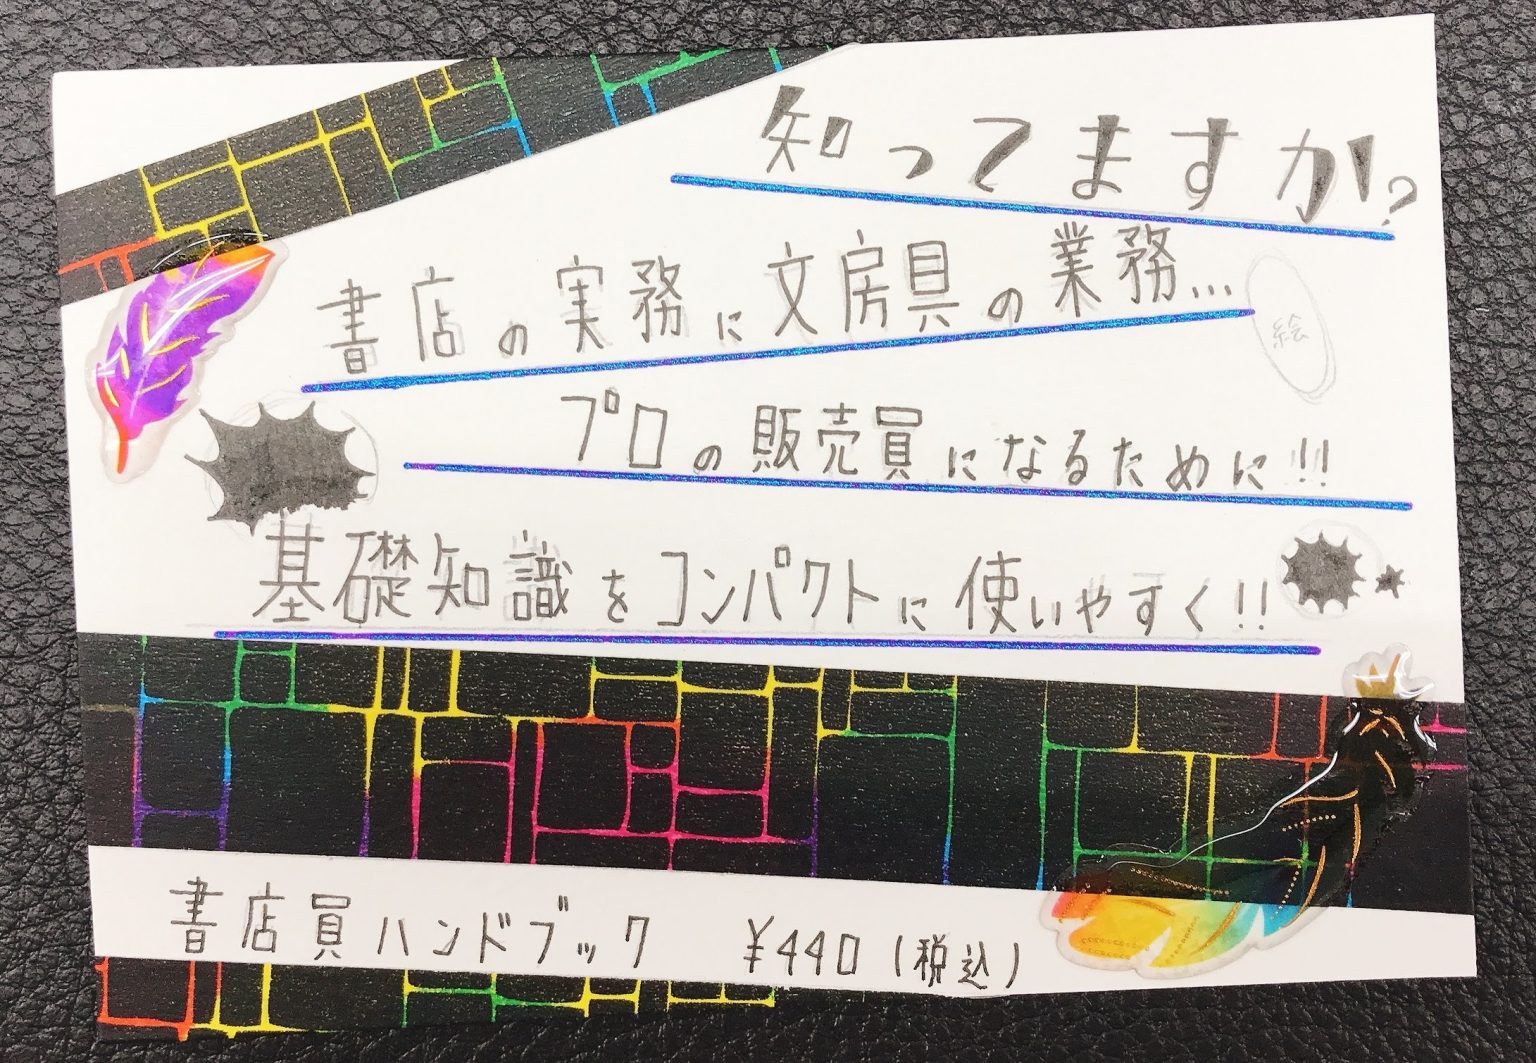 知ってますか?
書店の実務に文房具の業務...
絵
プロの販売員になるために!!
基礎知識をコンパクトに使いやすく!!
書店員ハンドブック ¥440(税込)